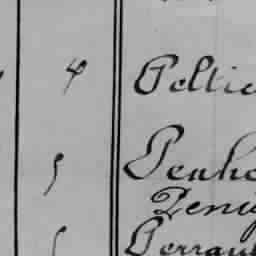 4 Peltie
5 Penhe
Peni
5 Perrau